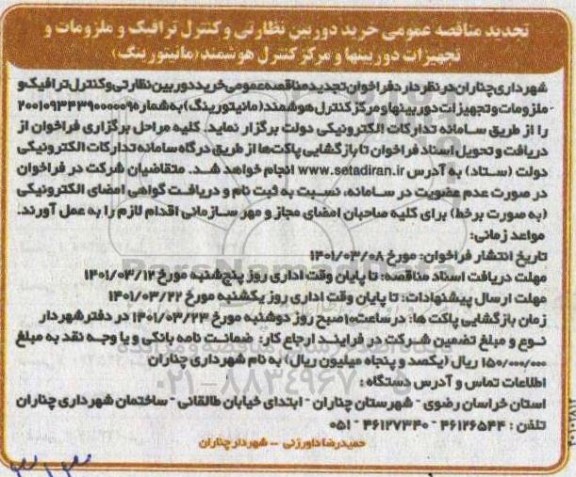 تجدید مناقصه عمومی خرید دوربین نظارتی و کنترل ترافیک و ملزومات و
تجهیزات دوربینها و مرکز کنترل هوشمند (مانیتورینگ)
شهرداری چناران در نظر دارد فراخوان تجدید مناقصه عمومی خرید دوربین نظارتی و کنترل ترافیک و
ملزومات و تجهیزات دوربینها و مرکز کنترل هوشمند (مانیتورینگ) به شماره ۲۰۰۱۰۹۳۴۳۹۰۰۰۰۰۹
را از طریق سامانه تدارکات الکترونیکی دولت برگزار نماید. کلیه مراحل برگزاری فراخوان از
دریافت و تحویل اسناد فراخوان تا بازگشایی پاکت‌ها از طریق درگاه سامانه تدارکات الکترونیکی
دولت (ستاد) به آدرس www.setadiran.ir انجام خواهد شد. متقاضیان شرکت در فراخوان
در صورت عدم عضویت در سامانه، نسبت به ثبت نام و دریافت گواهی امضای الکترونیکی
(به صورت برخط) برای کلیه صاحبان امضای مجاز و مهر سازمانی اقدام لازم را به عمل آورند.
مواعد زمانی:
تاریخ انتشار فراخوان: مورخ ۱۴۰۱/۰۳/۰۸
مهلت دریافت اسناد مناقصه: تا پایان وقت اداری روز پنج‌شنبه مورخ ۱۴۰۱/۰۳/۱۲
مهلت ارسال پیشنهادات: تا پایان وقت اداری روز یکشنبه مورخ ۱۴۰۱/۰۳/۲۲
زمان بازگشایی پاکت ها: در ساعت ۱۰ صبح روز دوشنبه مورخ ۱۴۰۱/۰۳/۲۳ در دفتر شهردار
نوع و مبلغ تضمین شرکت در فرایند ارجاع کار: ضمانت نامه بانکی و یا وجه نقد به مبلغ
۱۵۰/۰۰۰/۰۰۰ ریال (یکصد و پنجاه میلیون ریال) به نام شهرداری چناران
اطلاعات تماس و آدرس دستگاه:
استان خراسان رضوی - شهرستان چناران - ابتدای خیابان طالقانی - ساختمان شهرداری چناران
تلفن: ۴۶۱۲۶۵۴۴ - ۴۶۱۲۷۳۴۰ - ۰۵۱
حمیدرضا داورزنی - شهردار چناران
۰۲۱-۸۸۳۴۹۶۷۰